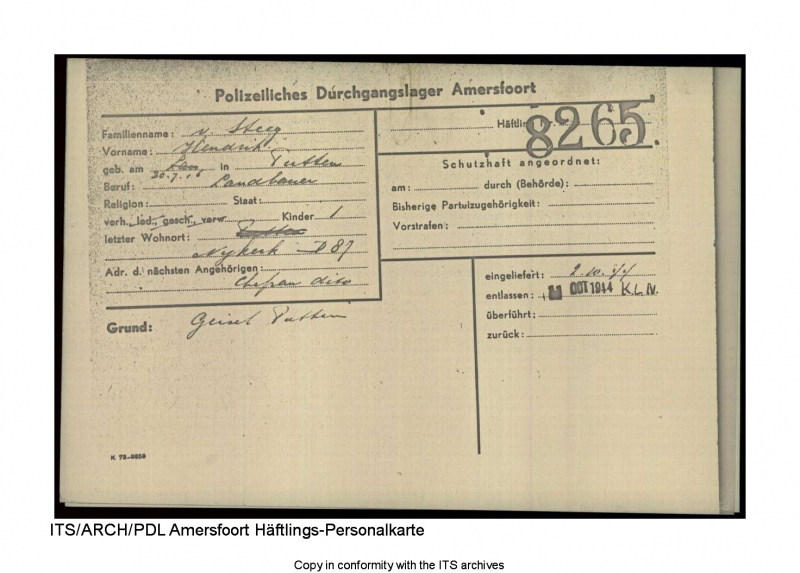 Polizeiliches Durchgangslager Amersfoort
Familienname: v. Steeg
Vorname: Hendrik
geb. am 30.7.16 in Putten
Beruf: Landbauer
Religion: Staat:
verh., led., gesch., verw. Kinder 1
letzter Wohnort: Putten
Nykerk D 87
Adr. d. nächsten Angehörigen:
Ehefrau dito
Häftlings-Nr. 8265
Schutzhaft angeordnet:
am: durch (Behörde):
Bisherige Parteizugehörigkeit:
Vorstrafen:
Grund: Geisel Putten
eingeliefert: 2.10.44
entlassen: OCT 1944 K.L.N.
überführt:
zurück:
K 72-9859
ITS/ARCH/PDL Amersfoort Häftlings-Personalkarte
Copy in conformity with the ITS archives